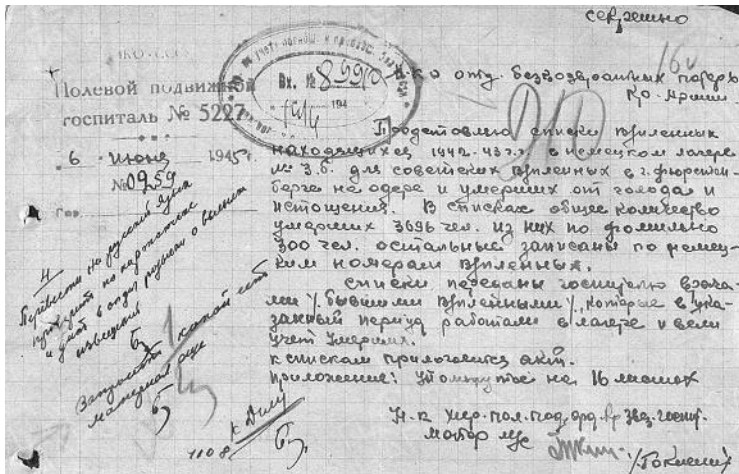 секретно
НКО-СССР
Полевой подвижной
госпиталь № 5227
6 июня 1945 г.
№ 0259
Гор.
Вх. №
194
16
Н-ку отд. безвозвратных потерь
Кр. Армии.
Представляю списки пленных
находящихся 1942-43 г.г. в немецком лагере
№ 3.б. для советских пленных в г. Фюрстен-
берге на Одере и умерших от голода и
истощения. В списках общее количество
умерших 3696 чел. из них по фамильно
300 чел. остальные записаны по немец-
ким номерам пленных.
Списки переданы госпиталю врача-
ми /. бывшими пленными /. которые в ука-
занный период работали в лагере и вели
учет умерших.
К спискам прилагается акт.
Приложение: Упомянутое на 16 листах
Перевести на русский язык
проверить по картотеке
и дать в отдел
извещений
Запросить какой есть
материал еще
к делу
1108
майор м/с